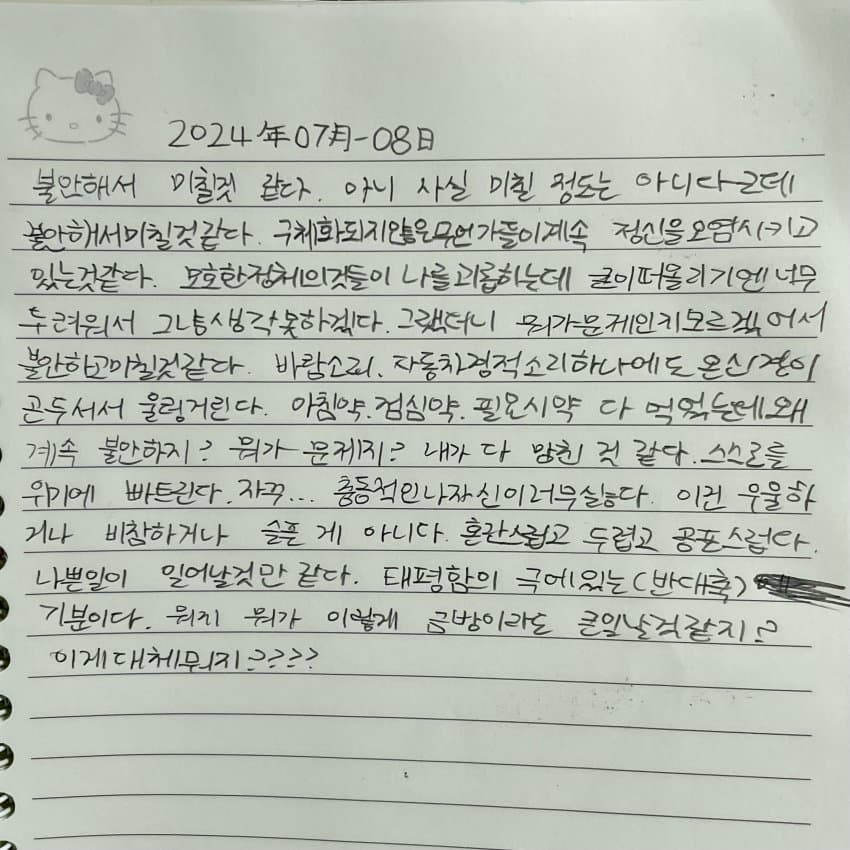 2024年07月-08日
불안해서 미칠것 같다. 아니 사실 미칠 정도는 아니다 근데
불안해서미칠것같다. 구체화되지않은무언가들이계속 정신을오염시키고
있는것같다. 모호한정체의것들이 나를괴롭히는데 끄집어떠올리기엔너무
두려워서 그냥생각못하겠다. 그랬더니 뭐가문제인지모르겠어서
불안하고미칠것같다. 바람소리, 자동차경적소리하나에도 온신경이
곤두서서 울렁거린다. 아침약.점심약. 필요시약 다 먹었는데왜
계속 불안하지? 뭐가 문제지? 내가 다 망친 것 같다. 스스로를
위기에 빠트린다. 자꾸... 충동적인나자신이너무싫다. 이건 우울하
거나 비참하거나 슬픈 게 아니다. 혼란스럽고 두렵고 공포스럽다.
나쁜일이 일어날것만 같다. 태평함의 극에있는(반대축)
기분이다. 뭐지 뭐가 이렇게 금방이라도 큰일날것같지!?
이게대체뭐지????